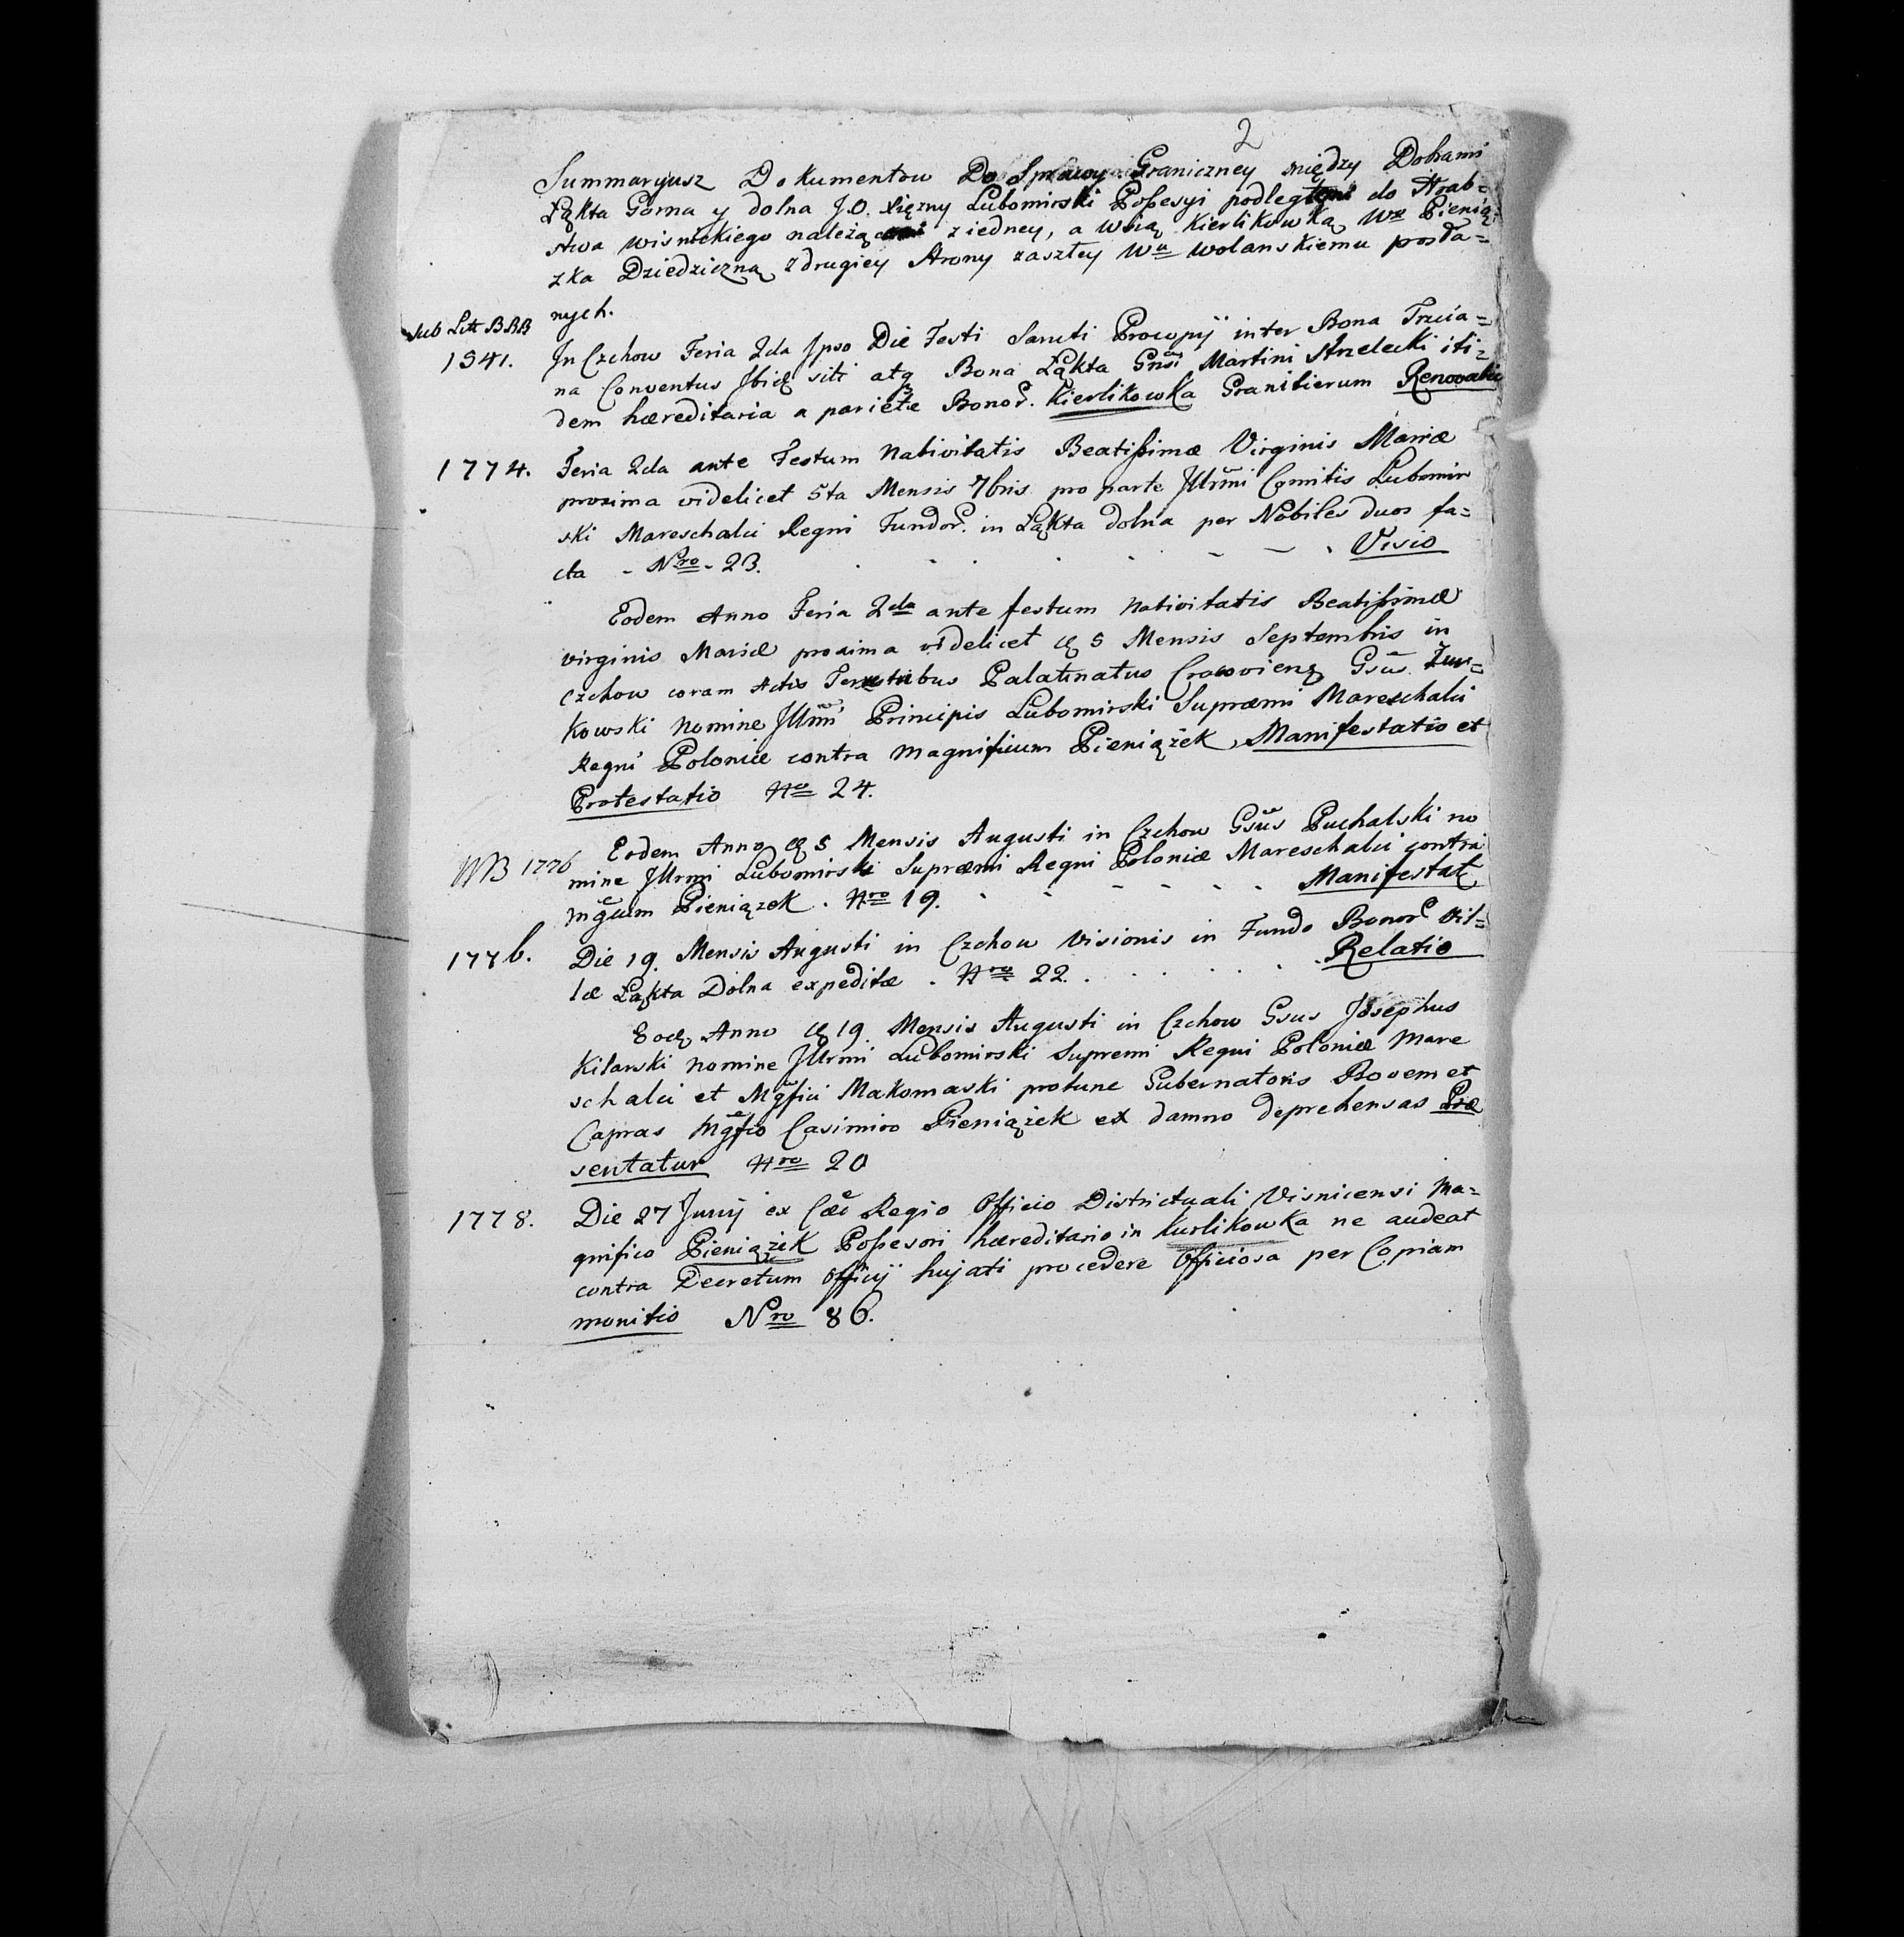 2
Summaryusz Dokumentow Do Sprawy Graniczney między Dobrami
Łąkta Gorna y dolna J.O. Xiężny Lubomirski Poßesyi podległemi do Hrab=
stwa wisnickiego należące ziedney, a wsią Kierlikowką Wo Pienią=
zka Dziedziczną zdrugiey strony zaszłey Wu wolanskiemu poda=
nych.
sub Litt BBB
1541. In Czchow Feria 2da Ipso Die Festi Sancti Procopÿ inter Bona Trzcia=
na Conventus Ibidę siti atq Bona Łąkta Gnsi Martini Strzelecki iti=
dem hæreditaria a pariete Bonor. Kierlikowka Granitierum Renovatio
1774. Feria 2da ante Festum Nativitatis Beatißimæ Virginis Mariæ
proxima videlicet 5ta Mensis 7bris pro parte Illrmi Comitis Lubomir
ski Mareschalci Regni Fundor. in Łąkta dolna per Nobiles duos fa=
cta - Nro - 23. Visio
Eodem Anno Feria 2da ante festum Nativitatis Beatißimæ
virginis Mariæ proxima videlicet 5 Mensis Septembris in
Czchow coram Actis Terrestribus Palatinatus Cracovienę Gsus
kowski Nomine Illrmi Principis Lubomirski Supræmi Mareschalci
Regni Poloniæ contra Magnificum Pieniążek Manifestatio et
Protestatio Nro 24.
NB 1776 Eodem Anno 5 Mensis Augusti in Czchow Gsus Puchalski no
mine Illrmi Lubomirski Supræmi Regni Poloniæ Mareschalci contra
mgcum Pieniązek . Nro 19. Manifestatę
1776. Die 19. Mensis Augusti in Czchow Visionis in Fundo Bonor. Vil=
læ Łąkta Dolna expeditæ . Nro 22. Relatio
Eodę Anno 19 Mensis Augusti in Czchow Gsus Josephus
Kilarski nomine Illrmi Lubomirski Supremi Regni Poloniæ Mare
schalci et Mgfici Makomaski protunc Gubernatoris Bovem et
Capras Mgfco Casimiro Pieniążek ex damno deprehensas Præ
sentatur Nro 20
1778. Die 27 Junÿ ex Cæo Regio Officio Districtuali Visnicensi Ma=
gnifico Pieniążek Poßesori hæreditario in Kurlikowka ne audeat
contra Decretum Officÿ hujati procedere Officiosa per Copiam
monitio Nro 86.